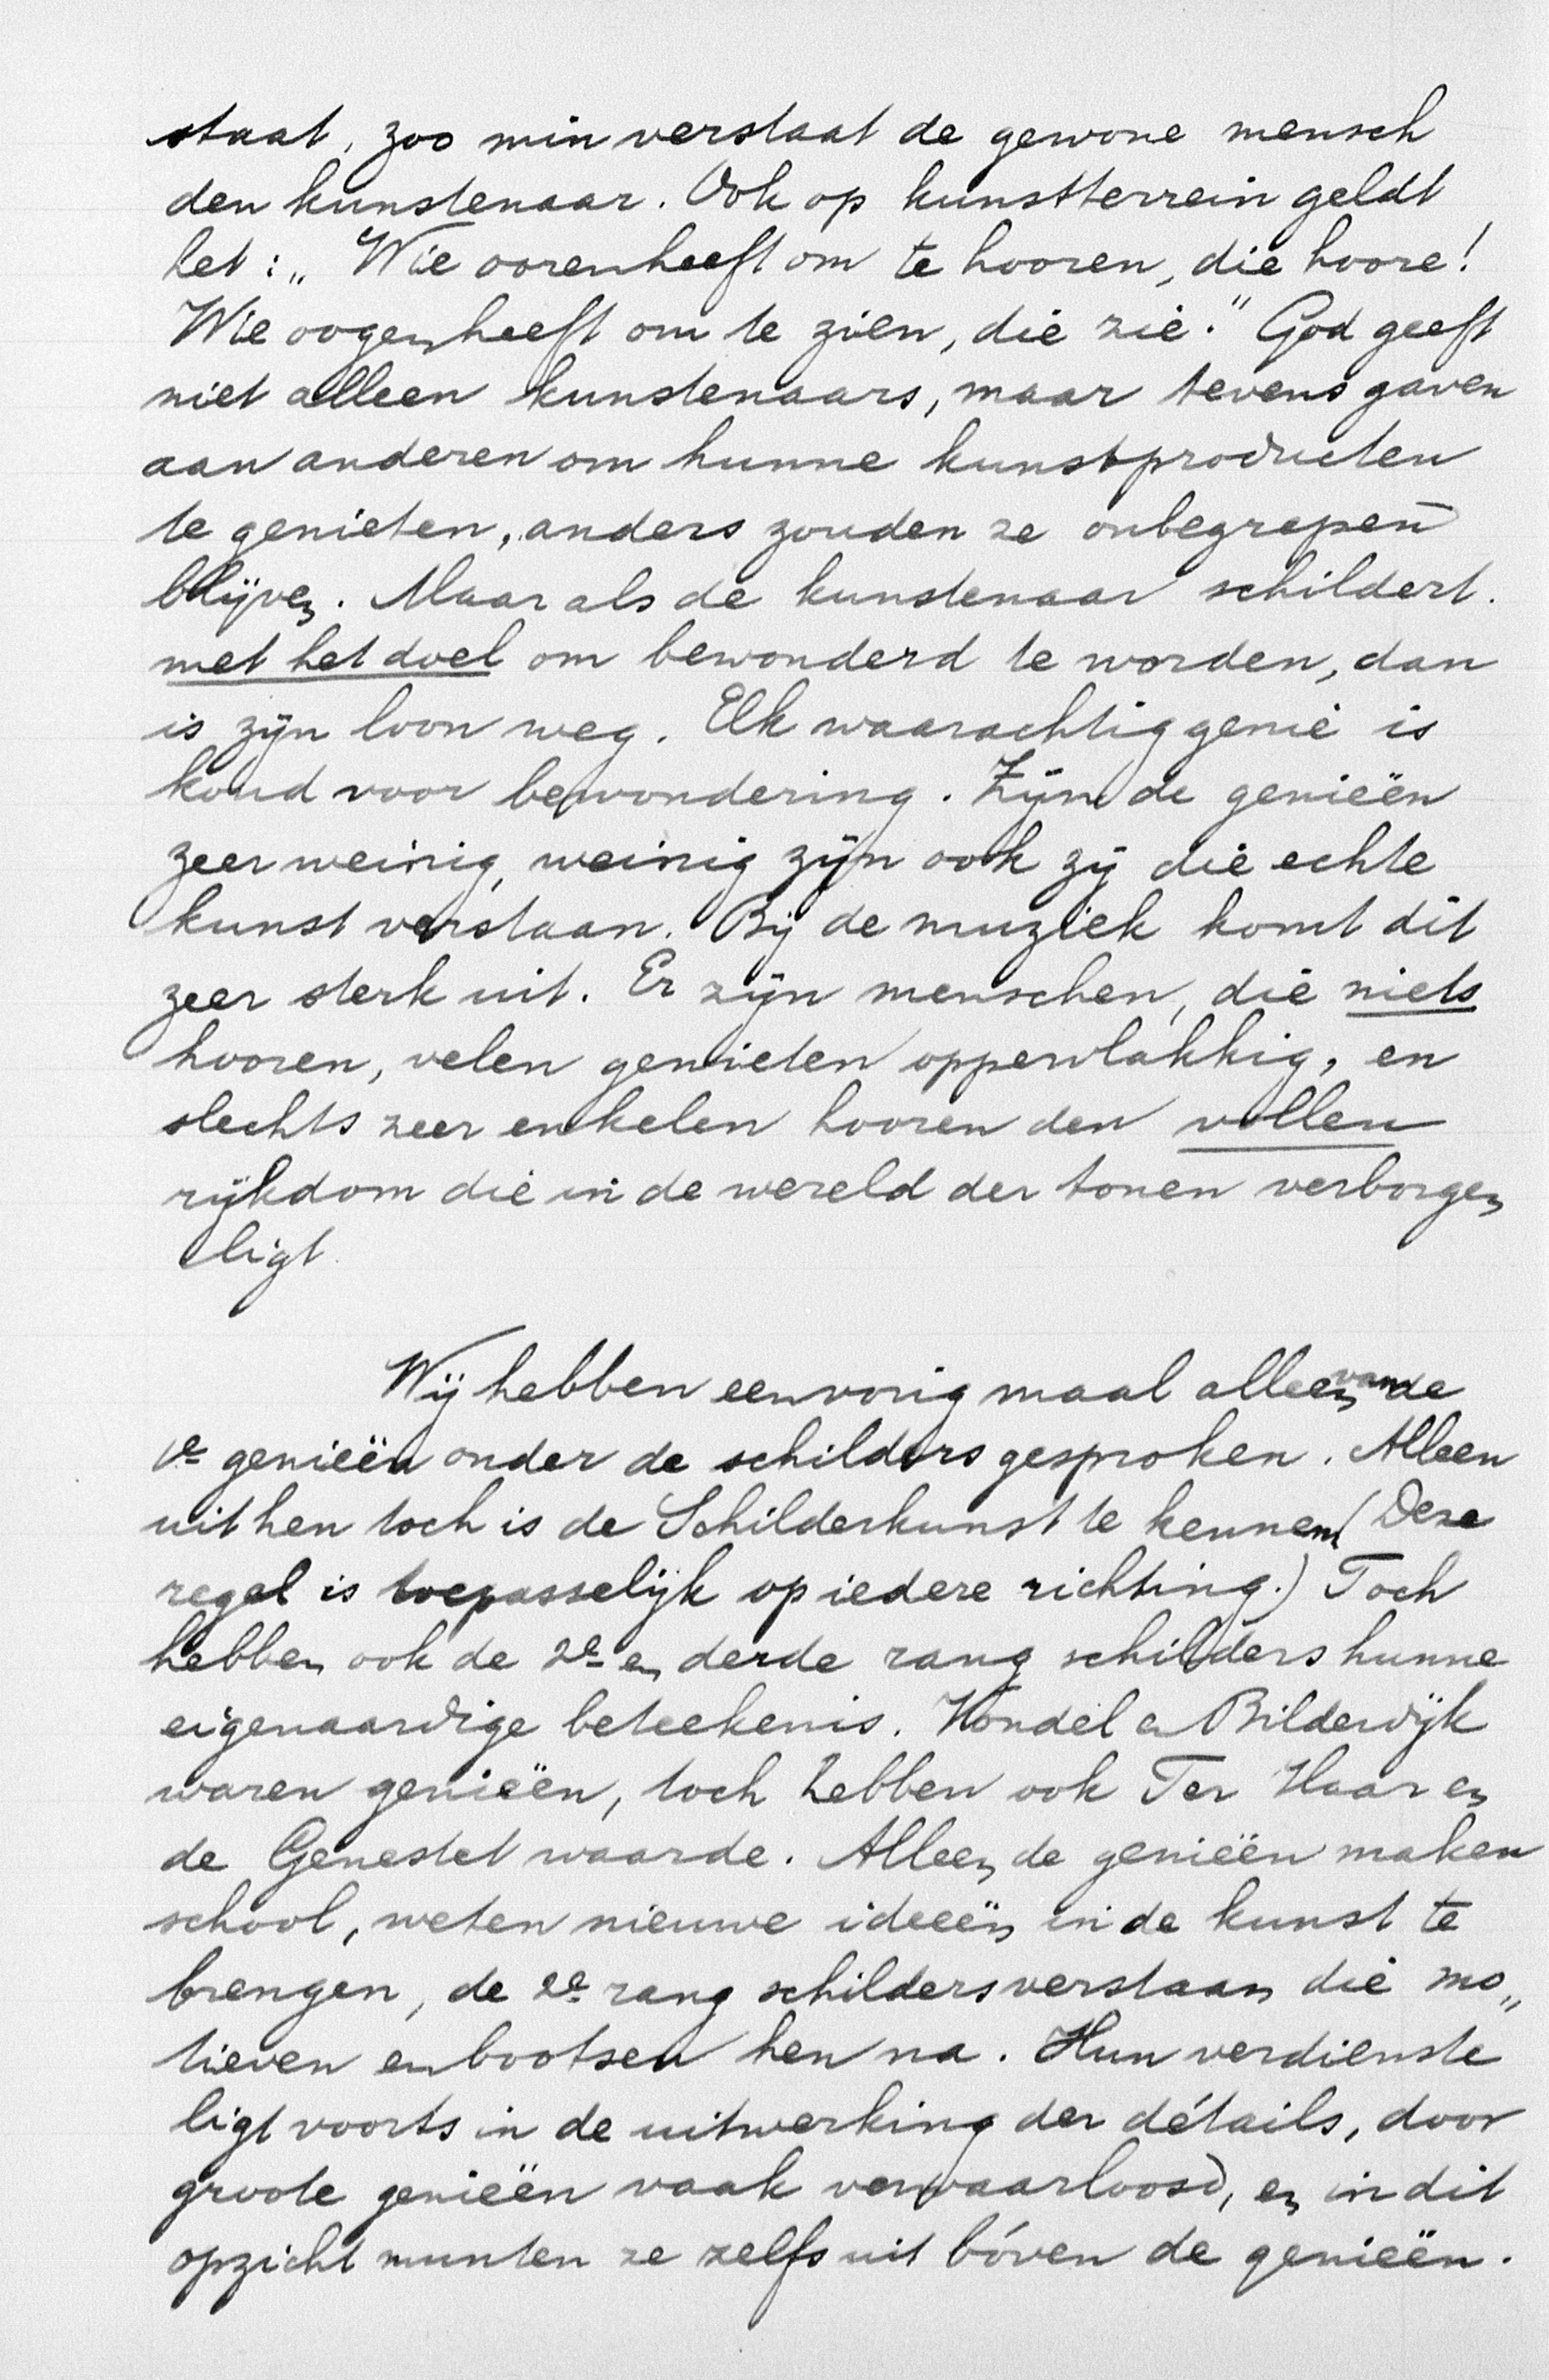 staat, zoo min verstaat de gewone mensch
den kunstenaar. Ook op kunstterrein geldt
het: „Wie ooren heeft om te hooren, die hoore!
Wie oogen heeft om te zien, die zie." God geeft
niet alleen kunstenaars, maar tevens gaven
aan anderen om hunne kunstproducten
te genieten, anders zouden ze onbegrepen
blijven. Maar als de kunstenaar schildert.
met het doel om bewonderd te worden, dan
is zijn loon weg. Elk waarachtig genie is
koud voor bewondering. Zijn de genieën
zeer weinig, weinig zijn ook zij die echte
kunst verstaan. Bij de muziek komt dit
zeer sterk uit. Er zijn menschen, die niets
hooren, velen genieten oppervlakkig, en
slechts zeer enkelen hooren den vollen
rijkdom die in de wereld der tonen verborgen
ligt.
Wij hebben een vorig maal alleen van de
1e genieën onder de schilders gesproken. Alleen
uit hen toch is de Schilderkunst te kennen (Deze
regel is toepasselijk op iedere richting.) Toch
hebben ook de 2e en derde rang schilders hunne
eigenaardige beteekenis. Vondel en Bilderdijk
waren genieën, toch hebben ook Ter Haar en
de Genestet waarde. Alleen de genieën maken
school, weten nieuwe ideeën in de kunst te
brengen, de 2e rang schilders verstaan die mo„
tieven en bootsen hen na. Hun verdienste
ligt voorts in de uitwerking der détails, door
groote genieën vaak verwaarloosd, en in dit
opzicht munten ze zelfs uit bóven de genieën.